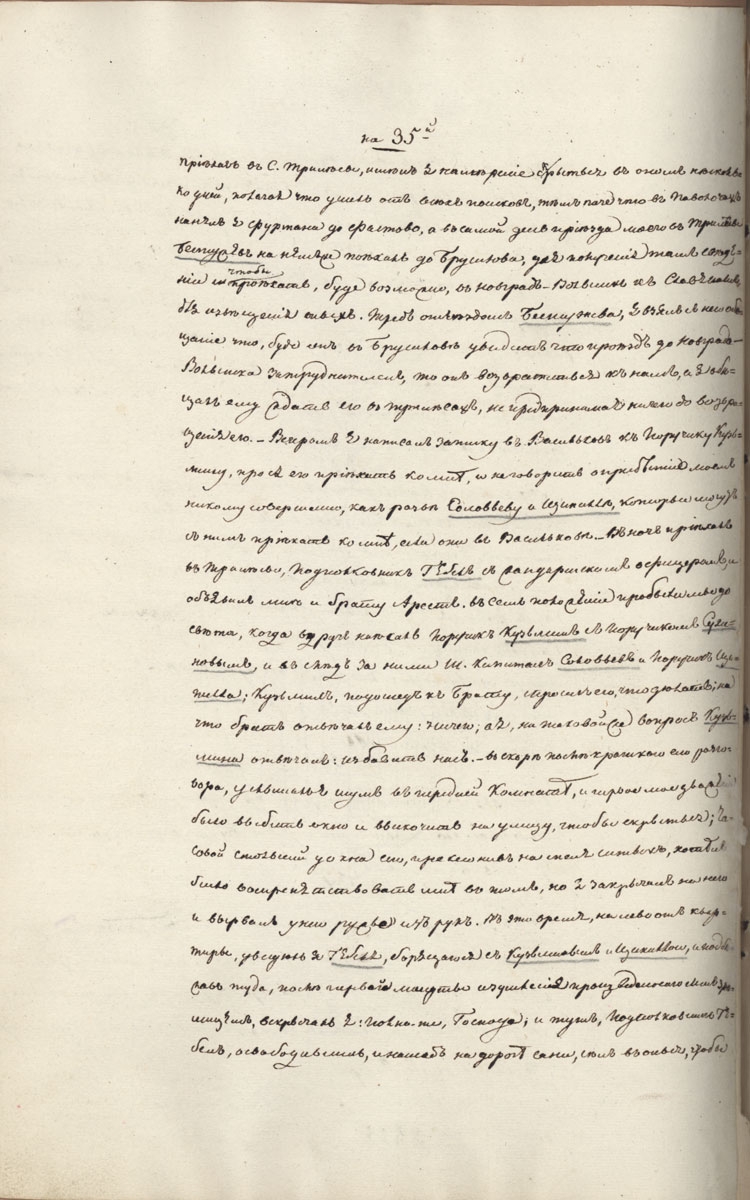 на 35й
пріѣхавъ въ С. Трилѣсы, имѣлъ я намѣреніе скрыться въ ономъ нѣсколь-
ко дней, полагая что уйду отъ всѣхъ поисковъ, тѣмъ паче что въ Паволочахъ
нанялъ я фурмана до Фастово, а въ самой день пріѣзда моего въ Трилѣсы
Бестужевъ на нѣмъ же поѣхалъ до Брусилова, для полученія тамъ свѣдѣ-
нія и чтобы проѣхать, буде возможно, въ Новградъ-Волынскъ къ Славянамъ
для извѣщенія ихъ. Предъ отъѣздомъ Бестужева, я взялъ съ него обѣ-
щаніе что, буде онъ въ Брусиловѣ увидитъ что проѣздъ до Новградъ-
Волынска затруднителенъ, то онъ возвратится къ намъ, а я обѣ-
щалъ ему ждать его въ Трилѣсахъ, не предпринимая ничего до возвра-
щенія его. – Вечеромъ я написалъ записку въ Васильковъ къ Поручику Кузь-
мину, прося его пріѣхать ко мнѣ, и не говорить о прибытіи моемъ
никому совершенно, какъ развѣ Соловьеву и Щипиллѣ, которые могутъ
съ нимъ пріѣхать ко мнѣ, если они въ Васильковѣ. – Въ ночь пріѣхалъ
въ Трилѣсы, Подполковникъ Гебель съ жандармскимъ офицеромъ, и
объявилъ мнѣ и брату Арестъ. Въ семъ положеніи пробыли мы до
свѣта, когда вдругъ наѣхалъ Поручикъ Кузьминъ съ Поручикомъ Сухи-
новымъ, и въ слѣдъ за ними Ш. Капитанъ Соловьевъ и Поручикъ Щи-
пилла; Кузьминъ, подошедъ къ Брату, спросилъ его, что дѣлать; на
что братъ отвѣчалъ ему: ничего; а я, на таковой же вопросъ Кузь-
мина отвѣчалъ: избавить насъ. – Вскорѣ послѣ краткаго его разго-
вора, услышалъ я шумъ въ передней Комнатѣ, и первое мое движеніе
было выбить окно и выскочить на улицу, чтобы скрыться; Ча-
совой стоявшій у окна сего, преклонивъ на меня штыкъ, хотѣлъ
было воспрепятствовать мнѣ въ томъ, но я закричалъ на него
и вырвалъ у него ружье изъ рукъ. Въ это время, налево отъ квар-
тиры, увидѣлъ я Гебеля, борящагося съ Кузьминымъ и Щипиллою, и подбѣ-
жавъ туда, послѣ перваго минутнаго изумленія произведеннаго симъ зрѣ-
лищемъ, вскричалъ я: полно-те, Господа; и тутъ, Подполковникъ Ге-
бель, освободившись, и нашедъ на дорогѣ сани, сѣлъ въ оныя, чтобы